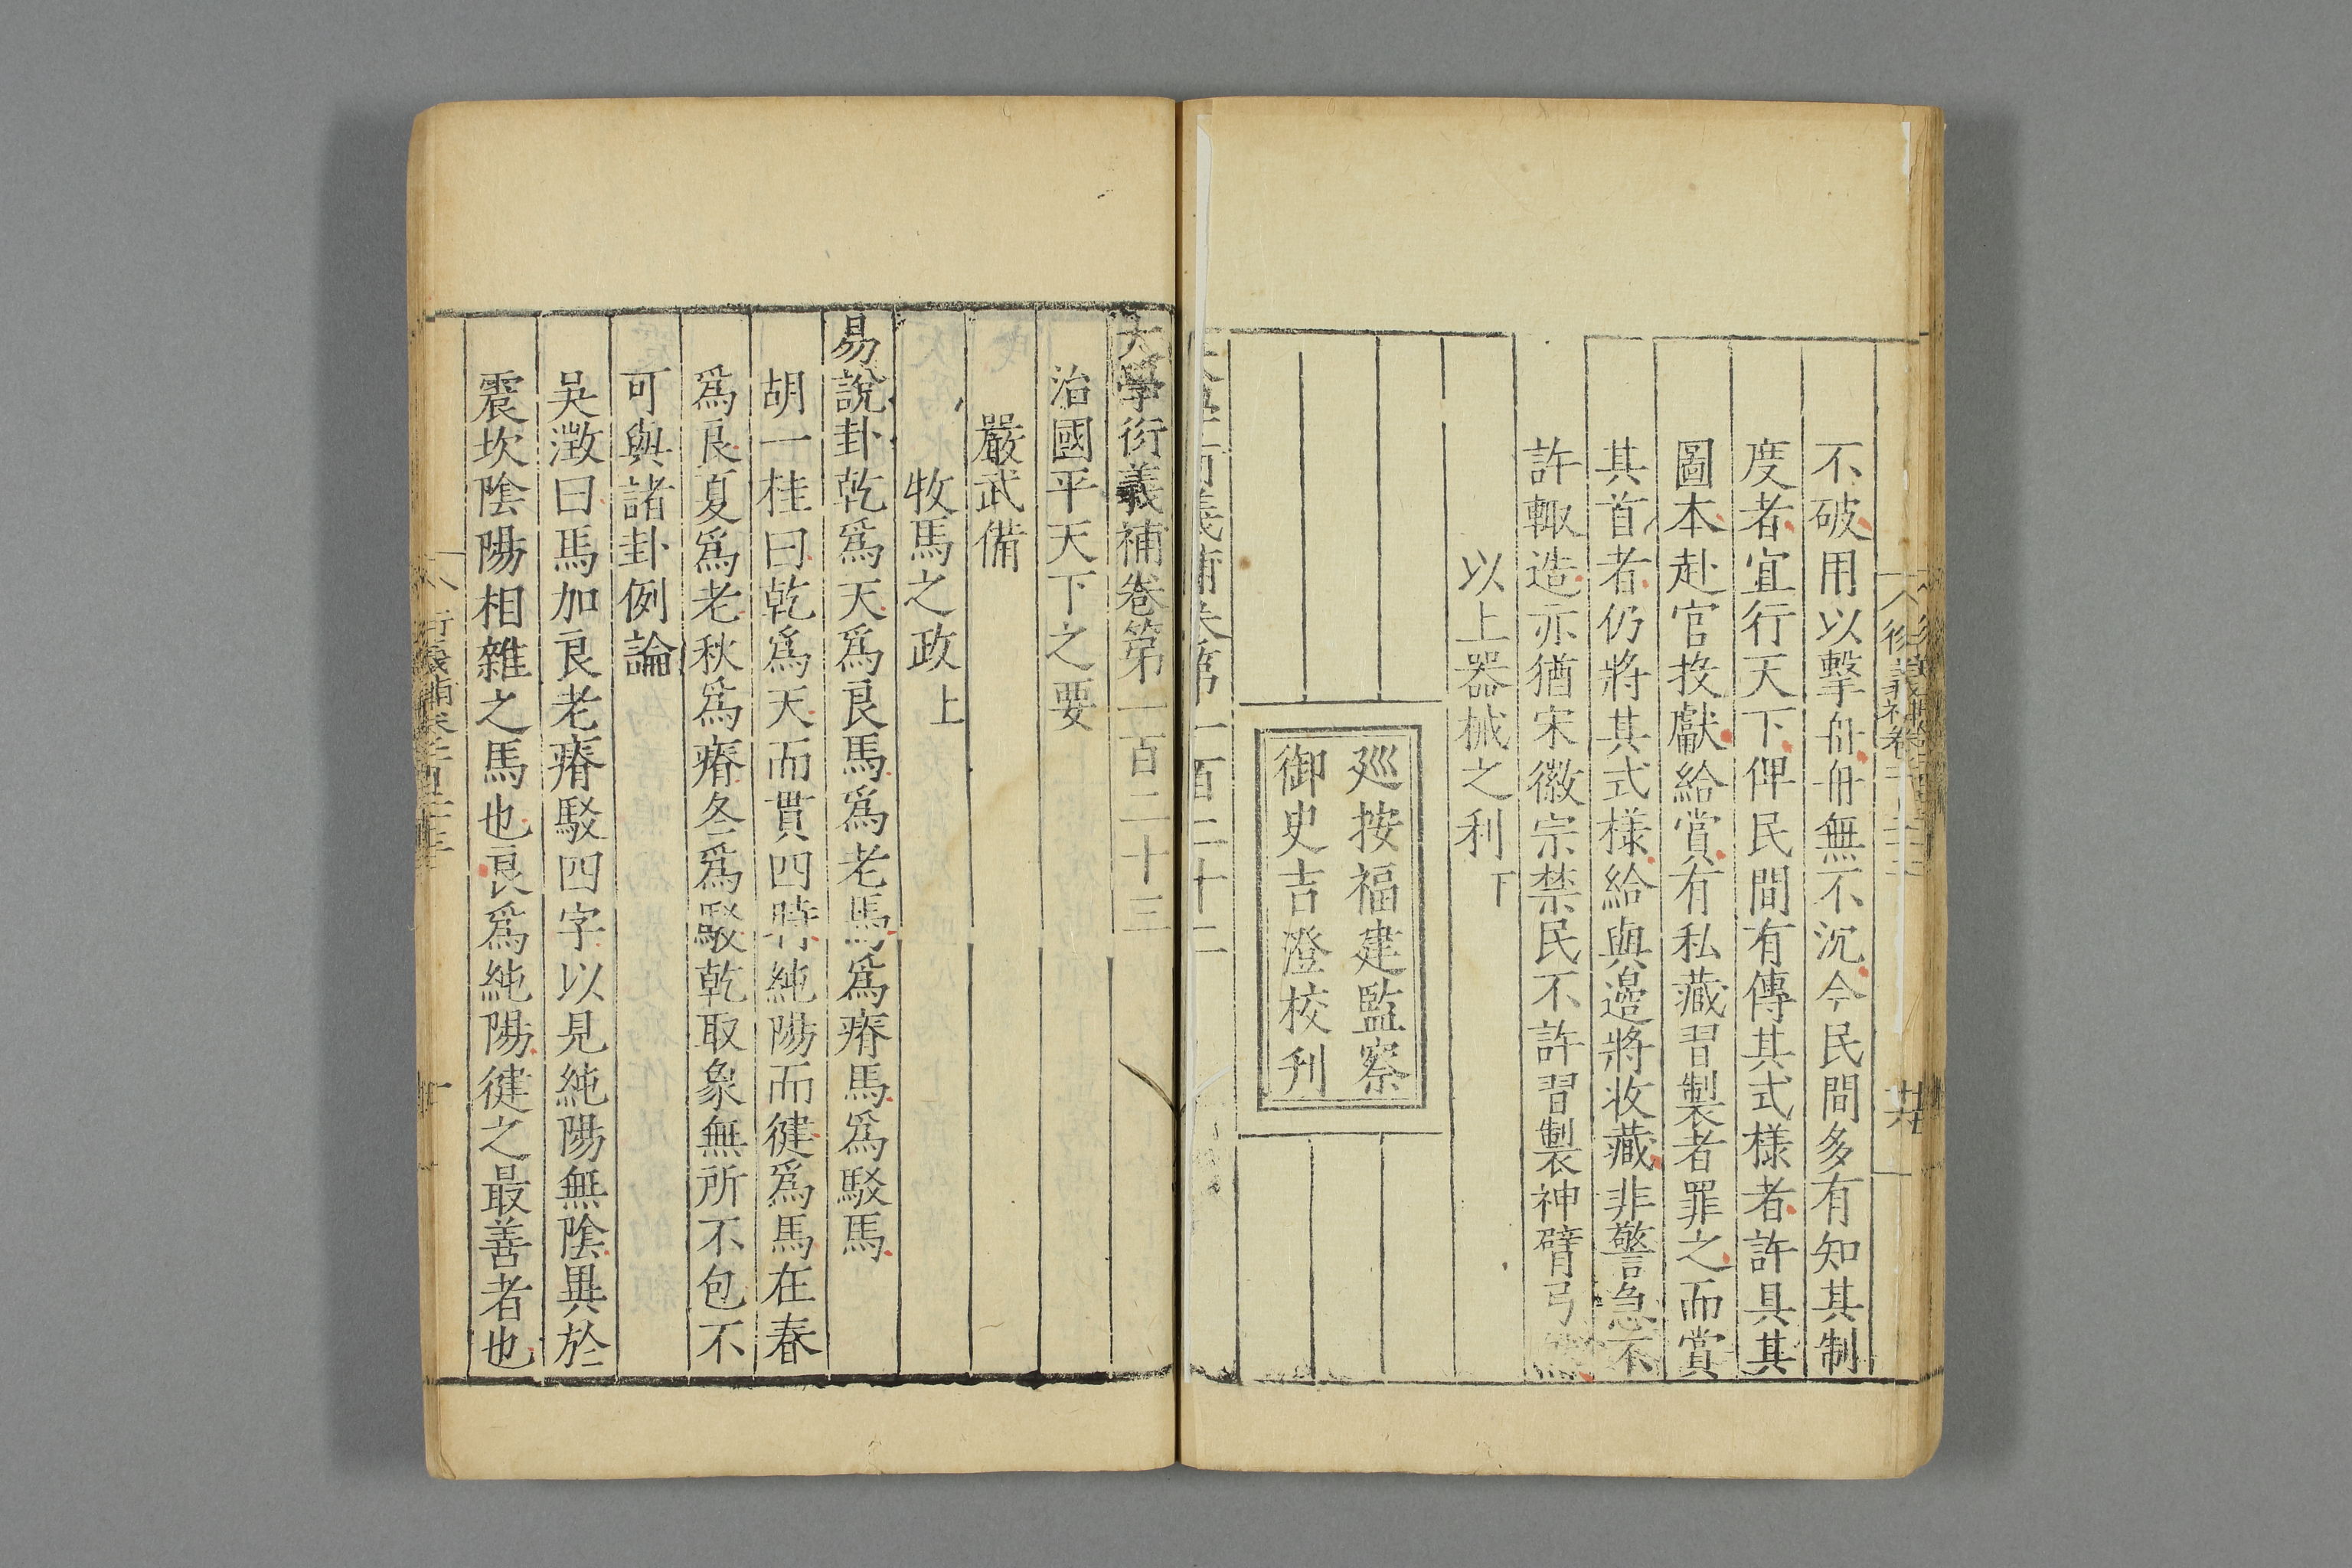 不破用以擊舟舟無不沉今民間多有知其制
度者宜行天下俾民間有傳其式樣者許具其
圖本赴官投獻給賞有私藏習製者罪之而賞
其首者仍將其式樣給與邊將收藏非警急不
許輙造亦猶宋徽宗禁民不許習製神臂弓
以上器械之利下
廵按福建監察
御史吉澄校刋
大學衍義補卷第一百二十二
大學衍義補卷第一百二十三
治國平天下之要
嚴武備
牧馬之政上
易說卦乾爲天爲良馬爲老馬爲瘠馬爲駁馬
胡一桂曰乾爲天而貫四時純陽而徤爲馬在春
爲良夏爲老秋爲瘠冬爲駁乾取象無所不包不
可與諸卦例論
吳澂曰馬加良老瘠駁四字以見純陽無陰異於
震坎陰陽相雜之馬也良爲純陽徤之最善者也